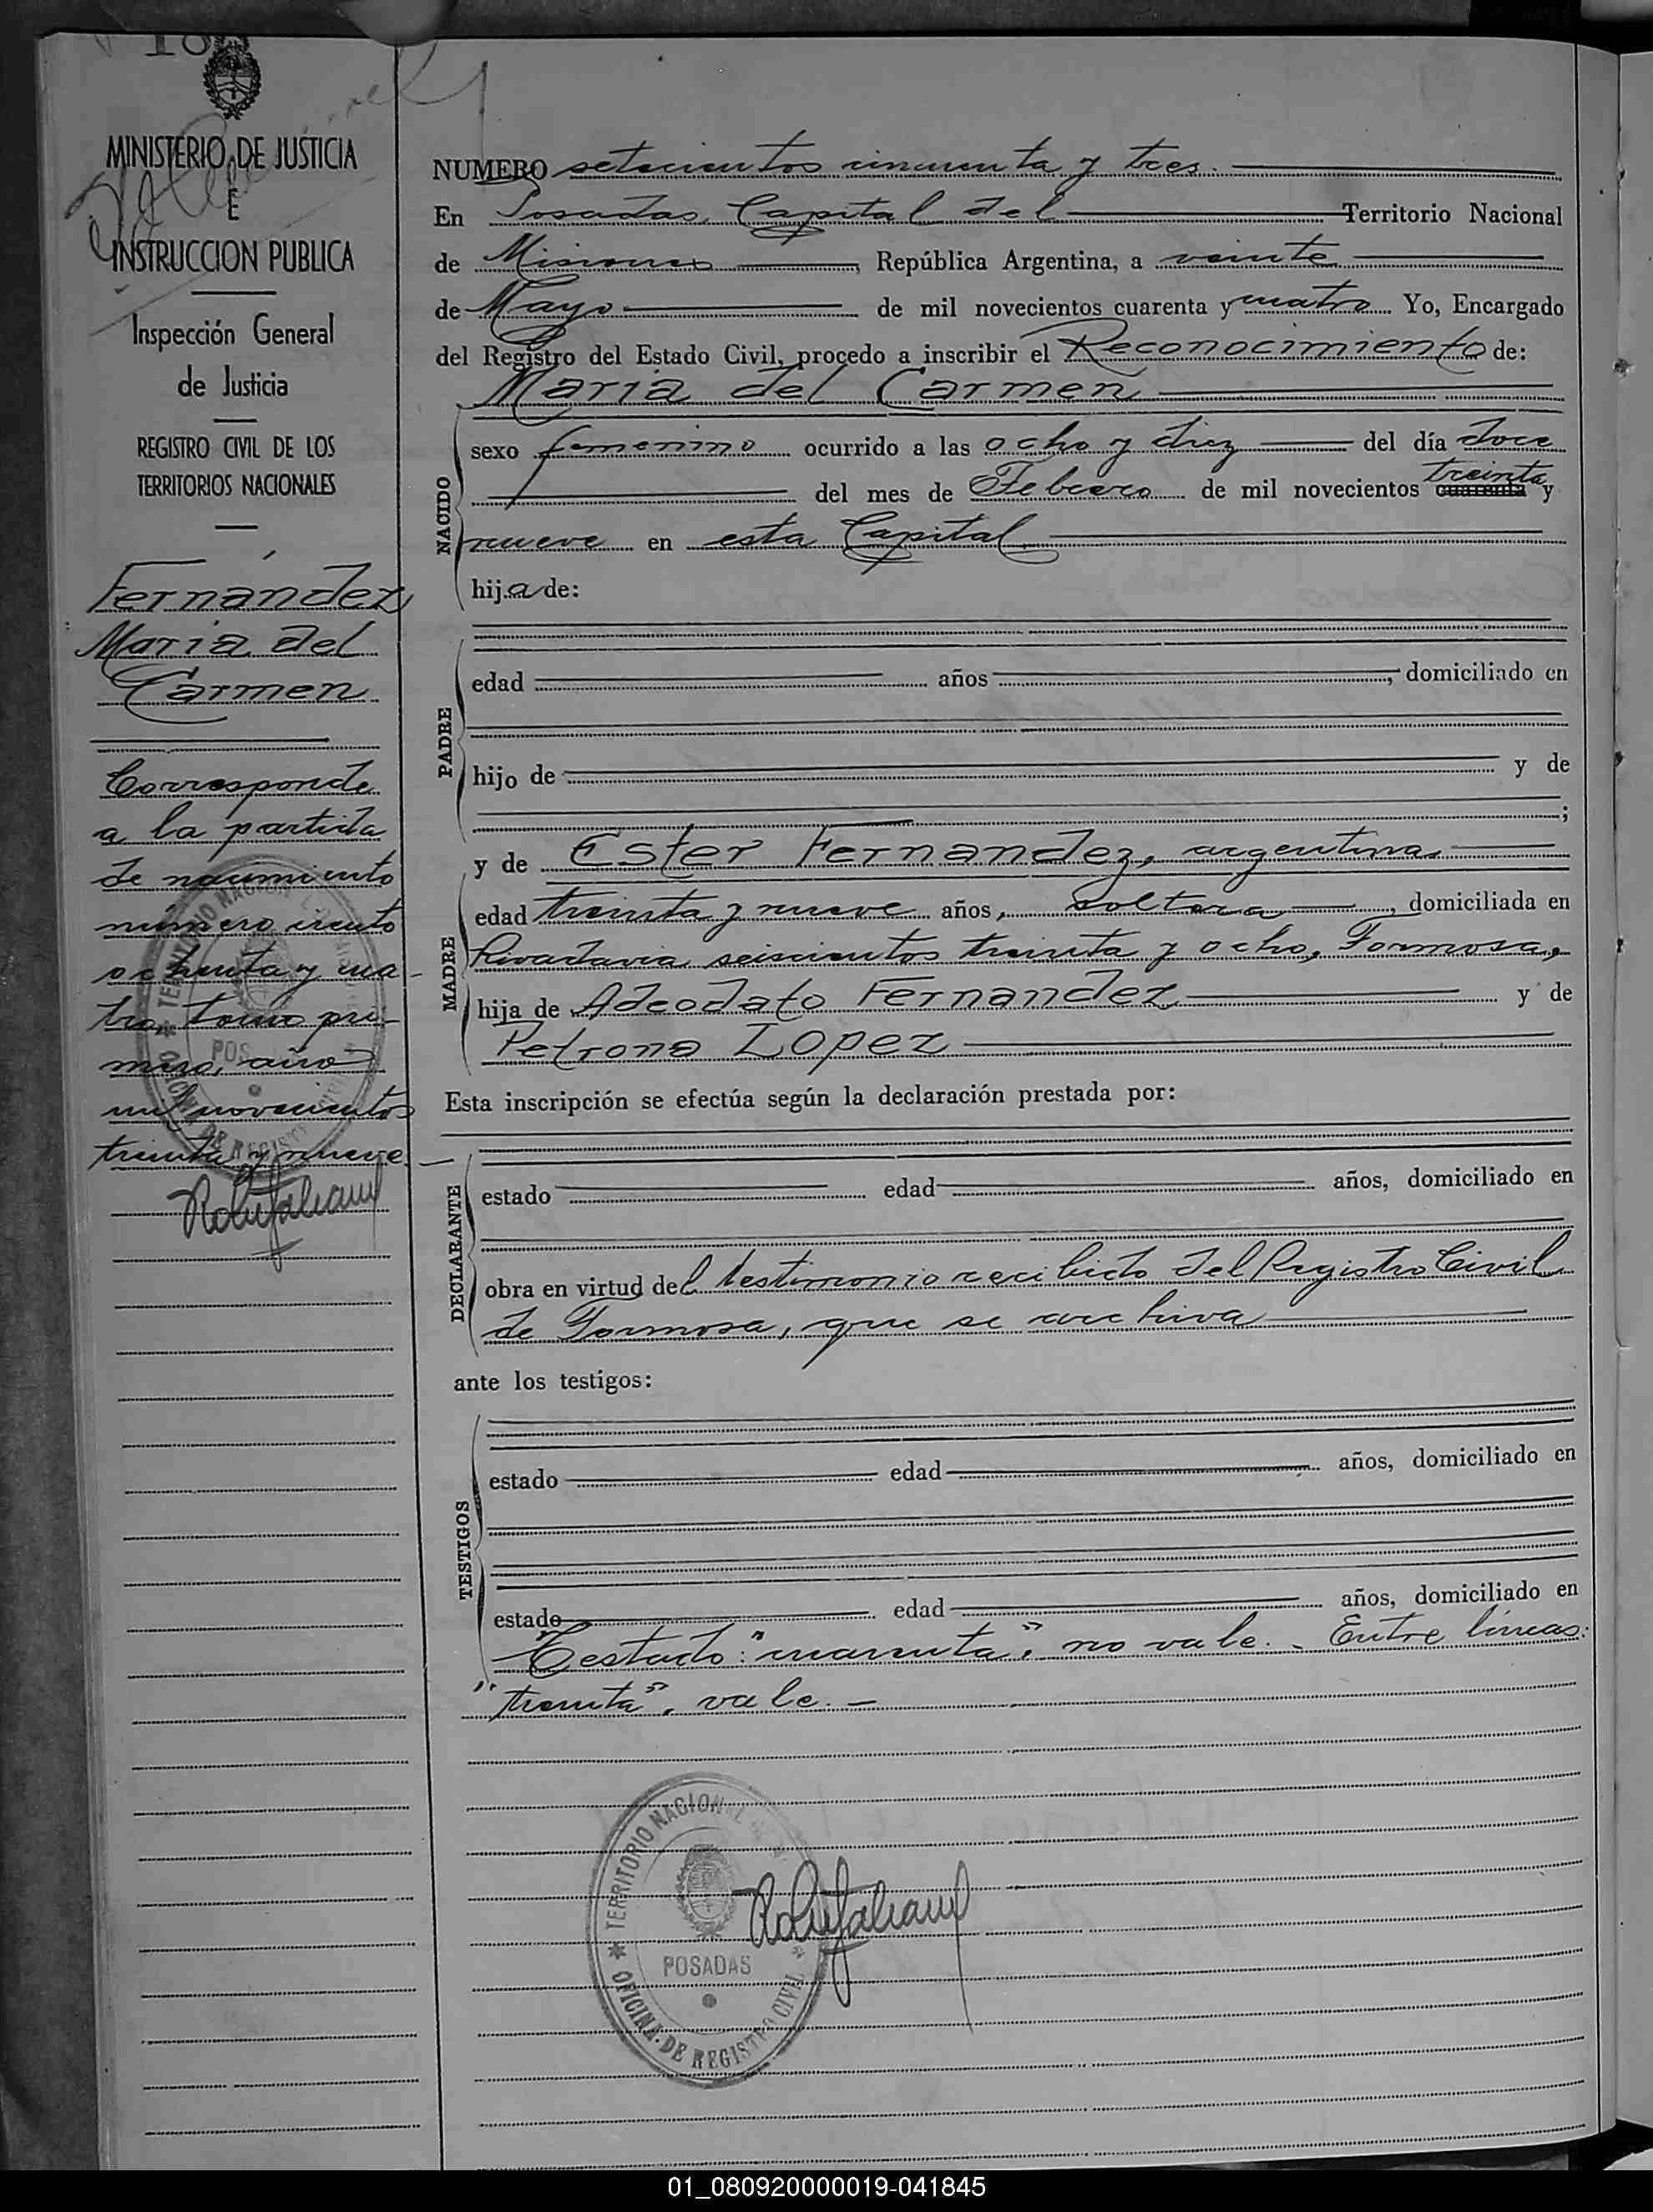 18
MINISTERIO DE JUSTICIA
E
INSTRUCCION PUBLICA
Inspección General
de Justicia
REGISTRO CIVIL DE LOS
TERRITORIOS NACIONALES
Fernández
María del
Carmen
Corresponde
a la partida
de nacimiento
número ciento
ochenta y cua-
tro, tomo pri-
mero, año
mil novecientos
treinta y nueve.
NUMERO setecientos cincuenta y tres.
En Posadas, Capital del Territorio Nacional
de Misiones, República Argentina, a veinte
de Mayo de mil novecientos cuarenta y cuatro. Yo, Encargado
del Registro del Estado Civil, procedo a inscribir el Reconocimiento de:
María del Carmen
NACIDO
sexo femenino ocurrido a las ocho y diez del día doce
del mes de Febrero de mil novecientos cuarenta treinta y
nueve en esta Capital
hija de:
PADRE
edad años, domiciliado en
hijo de y de
;
MADRE
y de Ester Fernandez, argentina,
edad treinta y nueve años, soltera, domiciliada en
Rivadavia seiscientos treinta y ocho, Formosa,
hija de Adeodato Fernandez y de
Petrona Lopez
Esta inscripción se efectúa según la declaración prestada por:
DECLARANTE
estado edad años, domiciliado en
obra en virtud del testimonio recibido del Registro Civil
de Formosa, que se archiva
ante los testigos:
TESTIGOS
estado edad años, domiciliado en
estado edad años, domiciliado en
Testado: "cuarenta", no vale. - Entre líneas:
"treinta", vale. -
TERRITORIO NACIONAL
POSADAS
OFICINA DE REGISTRO CIVIL
01_080920000019-041845